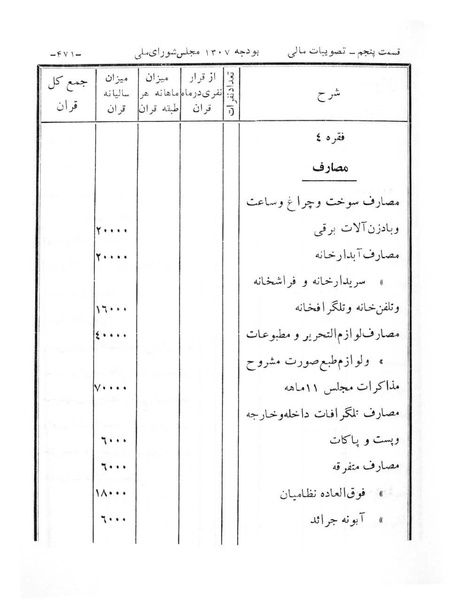 قسمت پنجم ــ تصویبات مالی بودجه ۱۳۰۷ مجلس‌شورای‌ملی ــ۴۷۱ــ
شرح تعداد نفرات از قرار نفری‌در‌ماه قران میزان ماهانه هر طبقه قران میزان سالیانه قران جمع کل قران
فقره ٤
مصارف
مصارف سوخت و چراغ و ساعت
و بادزن آلات برقی ۲۰۰۰۰
مصارف آبدارخانه ۲۰۰۰۰
» سریدارخانه و فراشخانه
و تلفن‌خانه و تلگرافخانه ۱۶۰۰۰
مصارف لوازم‌التحریر و مطبوعات ٤۰۰۰۰
» و لوازم طبع صورت مشروح
مذاکرات مجلس ۱۱ ماهه ۷۰۰۰۰
مصارف تلگرافات داخله و خارجه
و پست و پاکات ۶۰۰۰
مصارف متفرقه ۶۰۰۰
» فوق‌العاده نظامیان ۱۸۰۰۰
» آبونه جرائد ۶۰۰۰